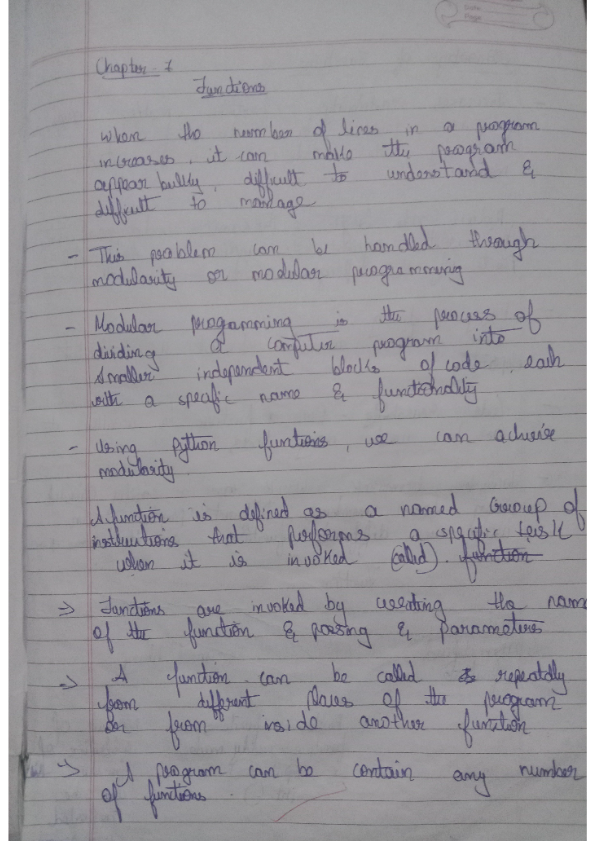 Chapter 7
Functions
When the number of lines in a program
increases, it can make the program
appear bulky, difficult to understand &
difficult to manage
- This problem can be handled through
modularity or modular programming
- Modular programming is the process of
dividing a computer program into
smaller independent blocks of code each
with a specific name & functionality
- Using python functions, we can achieve
modularity.
A function is defined as a named Group of
instructions that performs a specific task
when it is invoked (called). function
=> Functions are invoked by the name
of the function & passing & parameters
=> A function can be called repeatdly
from different places of the program
or from inside another function
=> A program can be contain any number
of functions.